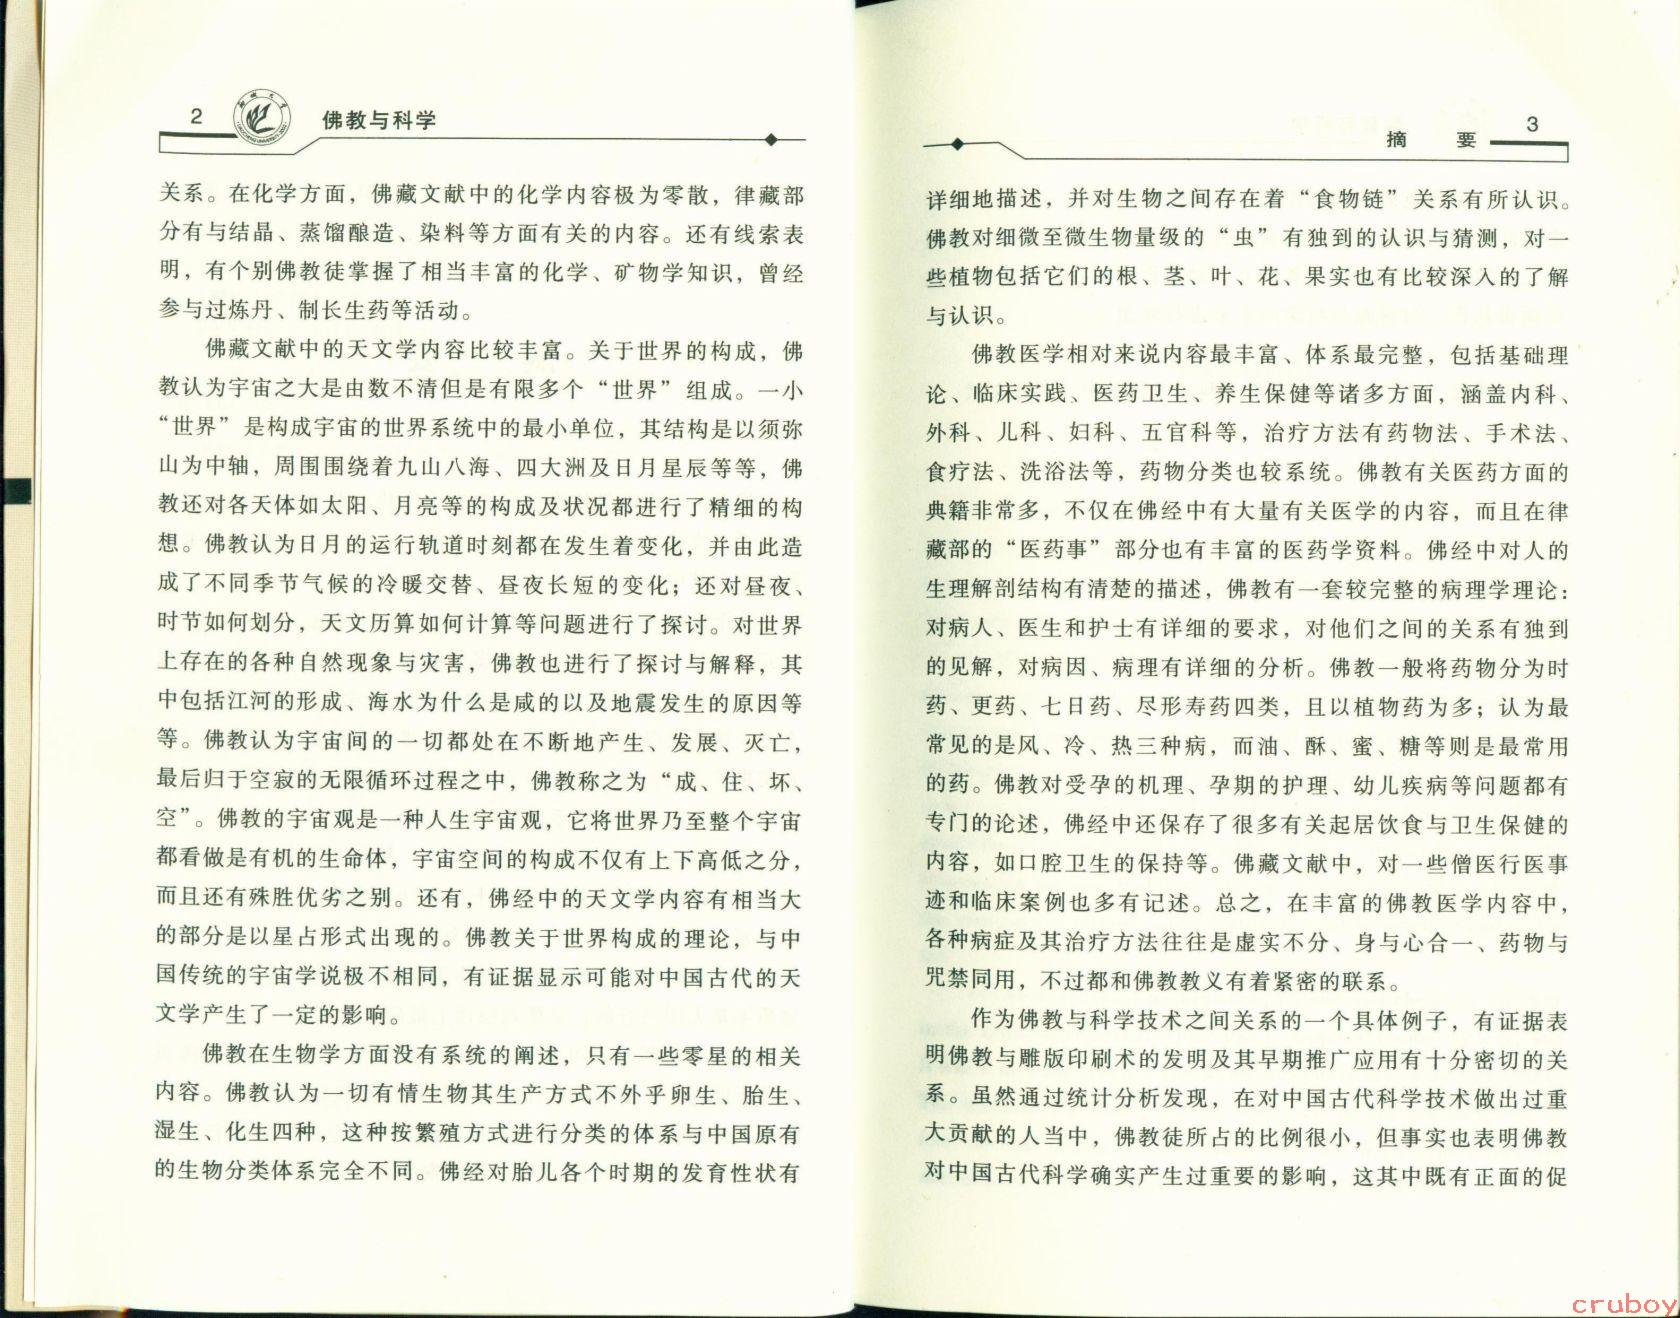 2
佛教与科学
关系。在化学方面，佛藏文献中的化学内容极为零散，律藏部
分有与结晶、蒸馏酿造、染料等方面有关的内容。还有线索表
明，有个别佛教徒掌握了相当丰富的化学、矿物学知识，曾经
参与过炼丹、制长生药等活动。
佛藏文献中的天文学内容比较丰富。关于世界的构成，佛
教认为宇宙之大是由数不清但是有限多个“世界”组成。一小
“世界”是构成宇宙的世界系统中的最小单位，其结构是以须弥
山为中轴，周围围绕着九山八海、四大洲及日月星辰等等，佛
教还对各天体如太阳、月亮等的构成及状况都进行了精细的构
想。佛教认为日月的运行轨道时刻都在发生着变化，并由此造
成了不同季节气候的冷暖交替、昼夜长短的变化；还对昼夜、
时节如何划分，天文历算如何计算等问题进行了探讨。对世界
上存在的各种自然现象与灾害，佛教也进行了探讨与解释，其
中包括江河的形成、海水为什么是咸的以及地震发生的原因等
等。佛教认为宇宙间的一切都处在不断地产生、发展、灭亡，
最后归于空寂的无限循环过程之中，佛教称之为“成、住、坏、
空”。佛教的宇宙观是一种人生宇宙观，它将世界乃至整个宇宙
都看做是有机的生命体，宇宙空间的构成不仅有上下高低之分，
而且还有殊胜优劣之别。还有，佛经中的天文学内容有相当大
的部分是以星占形式出现的。佛教关于世界构成的理论，与中
国传统的宇宙学说极不相同，有证据显示可能对中国古代的天
文学产生了一定的影响。
佛教在生物学方面没有系统的阐述，只有一些零星的相关
内容。佛教认为一切有情生物其生产方式不外乎卵生、胎生、
湿生、化生四种，这种按繁殖方式进行分类的体系与中国原有
的生物分类体系完全不同。佛经对胎儿各个时期的发育性状有
摘 要
3
详细地描述，并对生物之间存在着“食物链”关系有所认识。
佛教对细微至微生物量级的“虫”有独到的认识与猜测，对一
些植物包括它们的根、茎、叶、花、果实也有比较深入的了解
与认识。
佛教医学相对来说内容最丰富、体系最完整，包括基础理
论、临床实践、医药卫生、养生保健等诸多方面，涵盖内科、
外科、儿科、妇科、五官科等，治疗方法有药物法、手术法、
食疗法、洗浴法等，药物分类也较系统。佛教有关医药方面的
典籍非常多，不仅在佛经中有大量有关医学的内容，而且在律
藏部的“医药事”部分也有丰富的医药学资料。佛经中对人的
生理解剖结构有清楚的描述，佛教有一套较完整的病理学理论：
对病人、医生和护士有详细的要求，对他们之间的关系有独到
的见解，对病因、病理有详细的分析。佛教一般将药物分为时
药、更药、七日药、尽形寿药四类，且以植物药为多；认为最
常见的是风、冷、热三种病，而油、酥、蜜、糖等则是最常用
的药。佛教对受孕的机理、孕期的护理、幼儿疾病等问题都有
专门的论述，佛经中还保存了很多有关起居饮食与卫生保健的
内容，如口腔卫生的保持等。佛藏文献中，对一些僧医行医事
迹和临床案例也多有记述。总之，在丰富的佛教医学内容中，
各种病症及其治疗方法往往是虚实不分、身与心合一、药物与
咒禁同用，不过都和佛教教义有着紧密的联系。
作为佛教与科学技术之间关系的一个具体例子，有证据表
明佛教与雕版印刷术的发明及其早期推广应用有十分密切的关
系。虽然通过统计分析发现，在对中国古代科学技术做出过重
大贡献的人当中，佛教徒所占的比例很小，但事实也表明佛教
对中国古代科学确实产生过重要的影响，这其中既有正面的促
cruboy